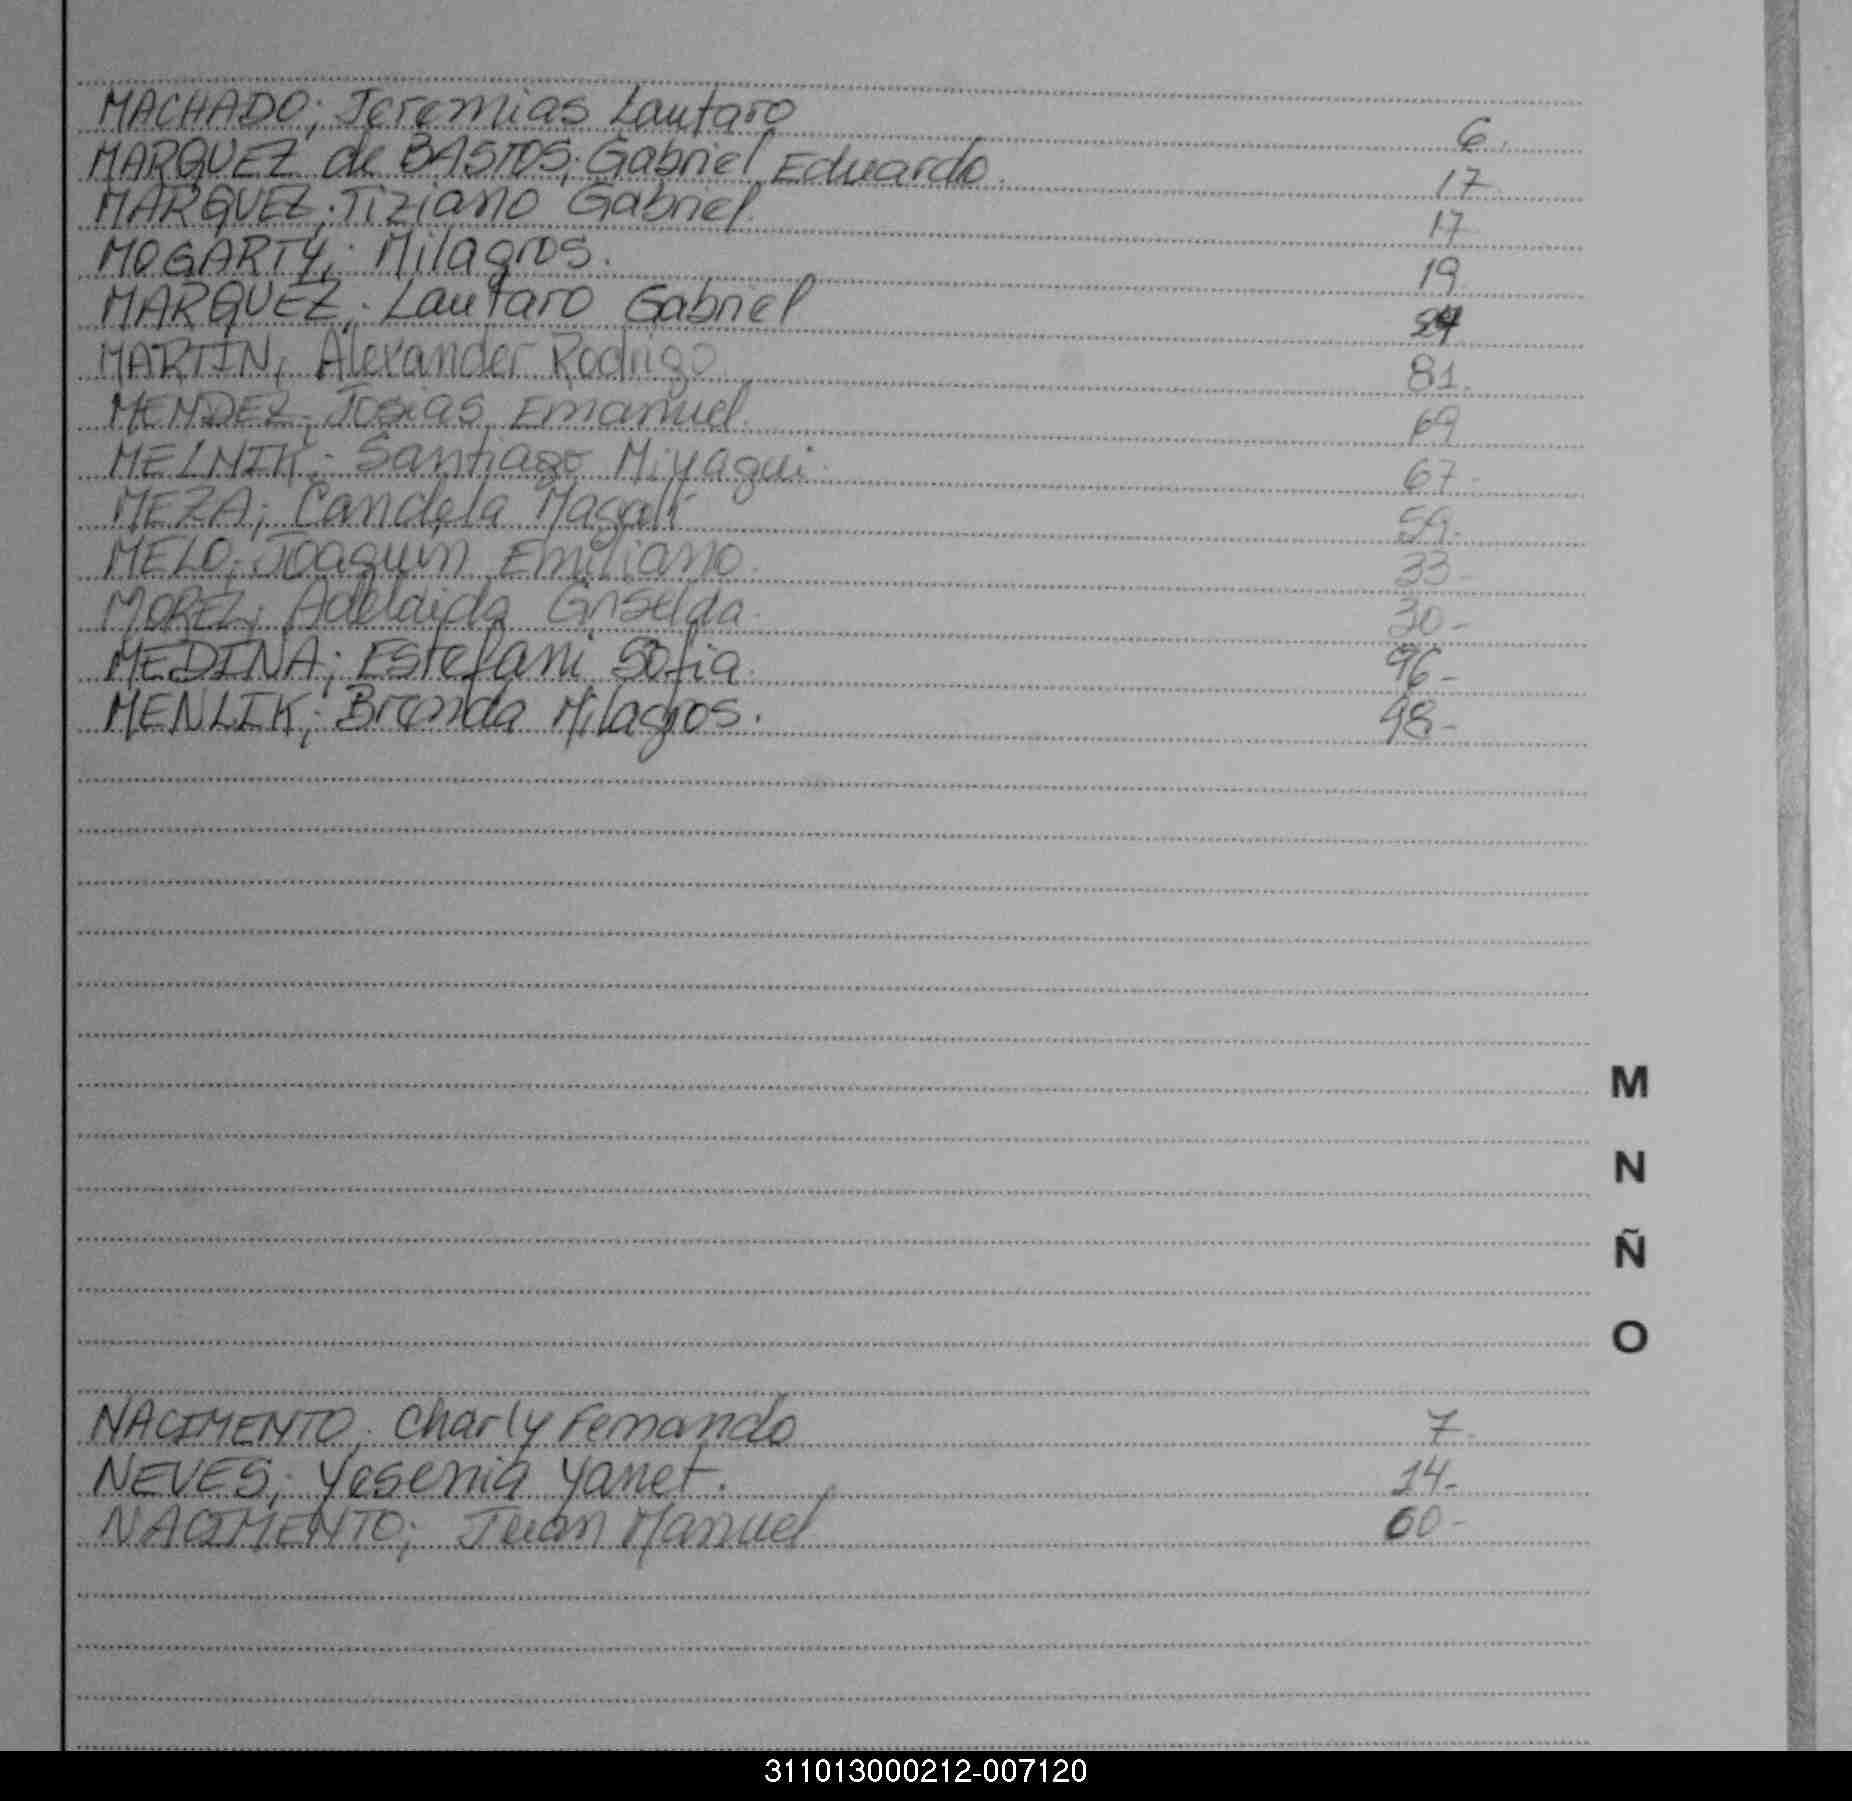 MACHADO; Jeremias Lautaro 6.
MARQUEZ de BASTOS; Gabriel Eduardo. 17.
MARQUEZ; Tiziano Gabriel. 17.
MOGARTY; Milagros. 19.
MARQUEZ; Lautaro Gabriel
MARTIN, Alexander Rodrigo. 81.
MENDEZ; Josias Emanuel. 69
MELNIK; Santiago Miyagui. 67.
MEZA; Candela Magali 59.
MELO; Joaquin Emiliano. 33-
MOREZ; Adelaida Griselda. 30-
MEDINA; Estefani Sofia. 96-
MENLIK; Brenda Milagros. 98-
M
N
Ñ
O
NACIMENTO; Charly Fernando 7.
NEVES; Yesenia Yanet. 14-
NACIMENTO; Juan Manuel 60-
311013000212-007120